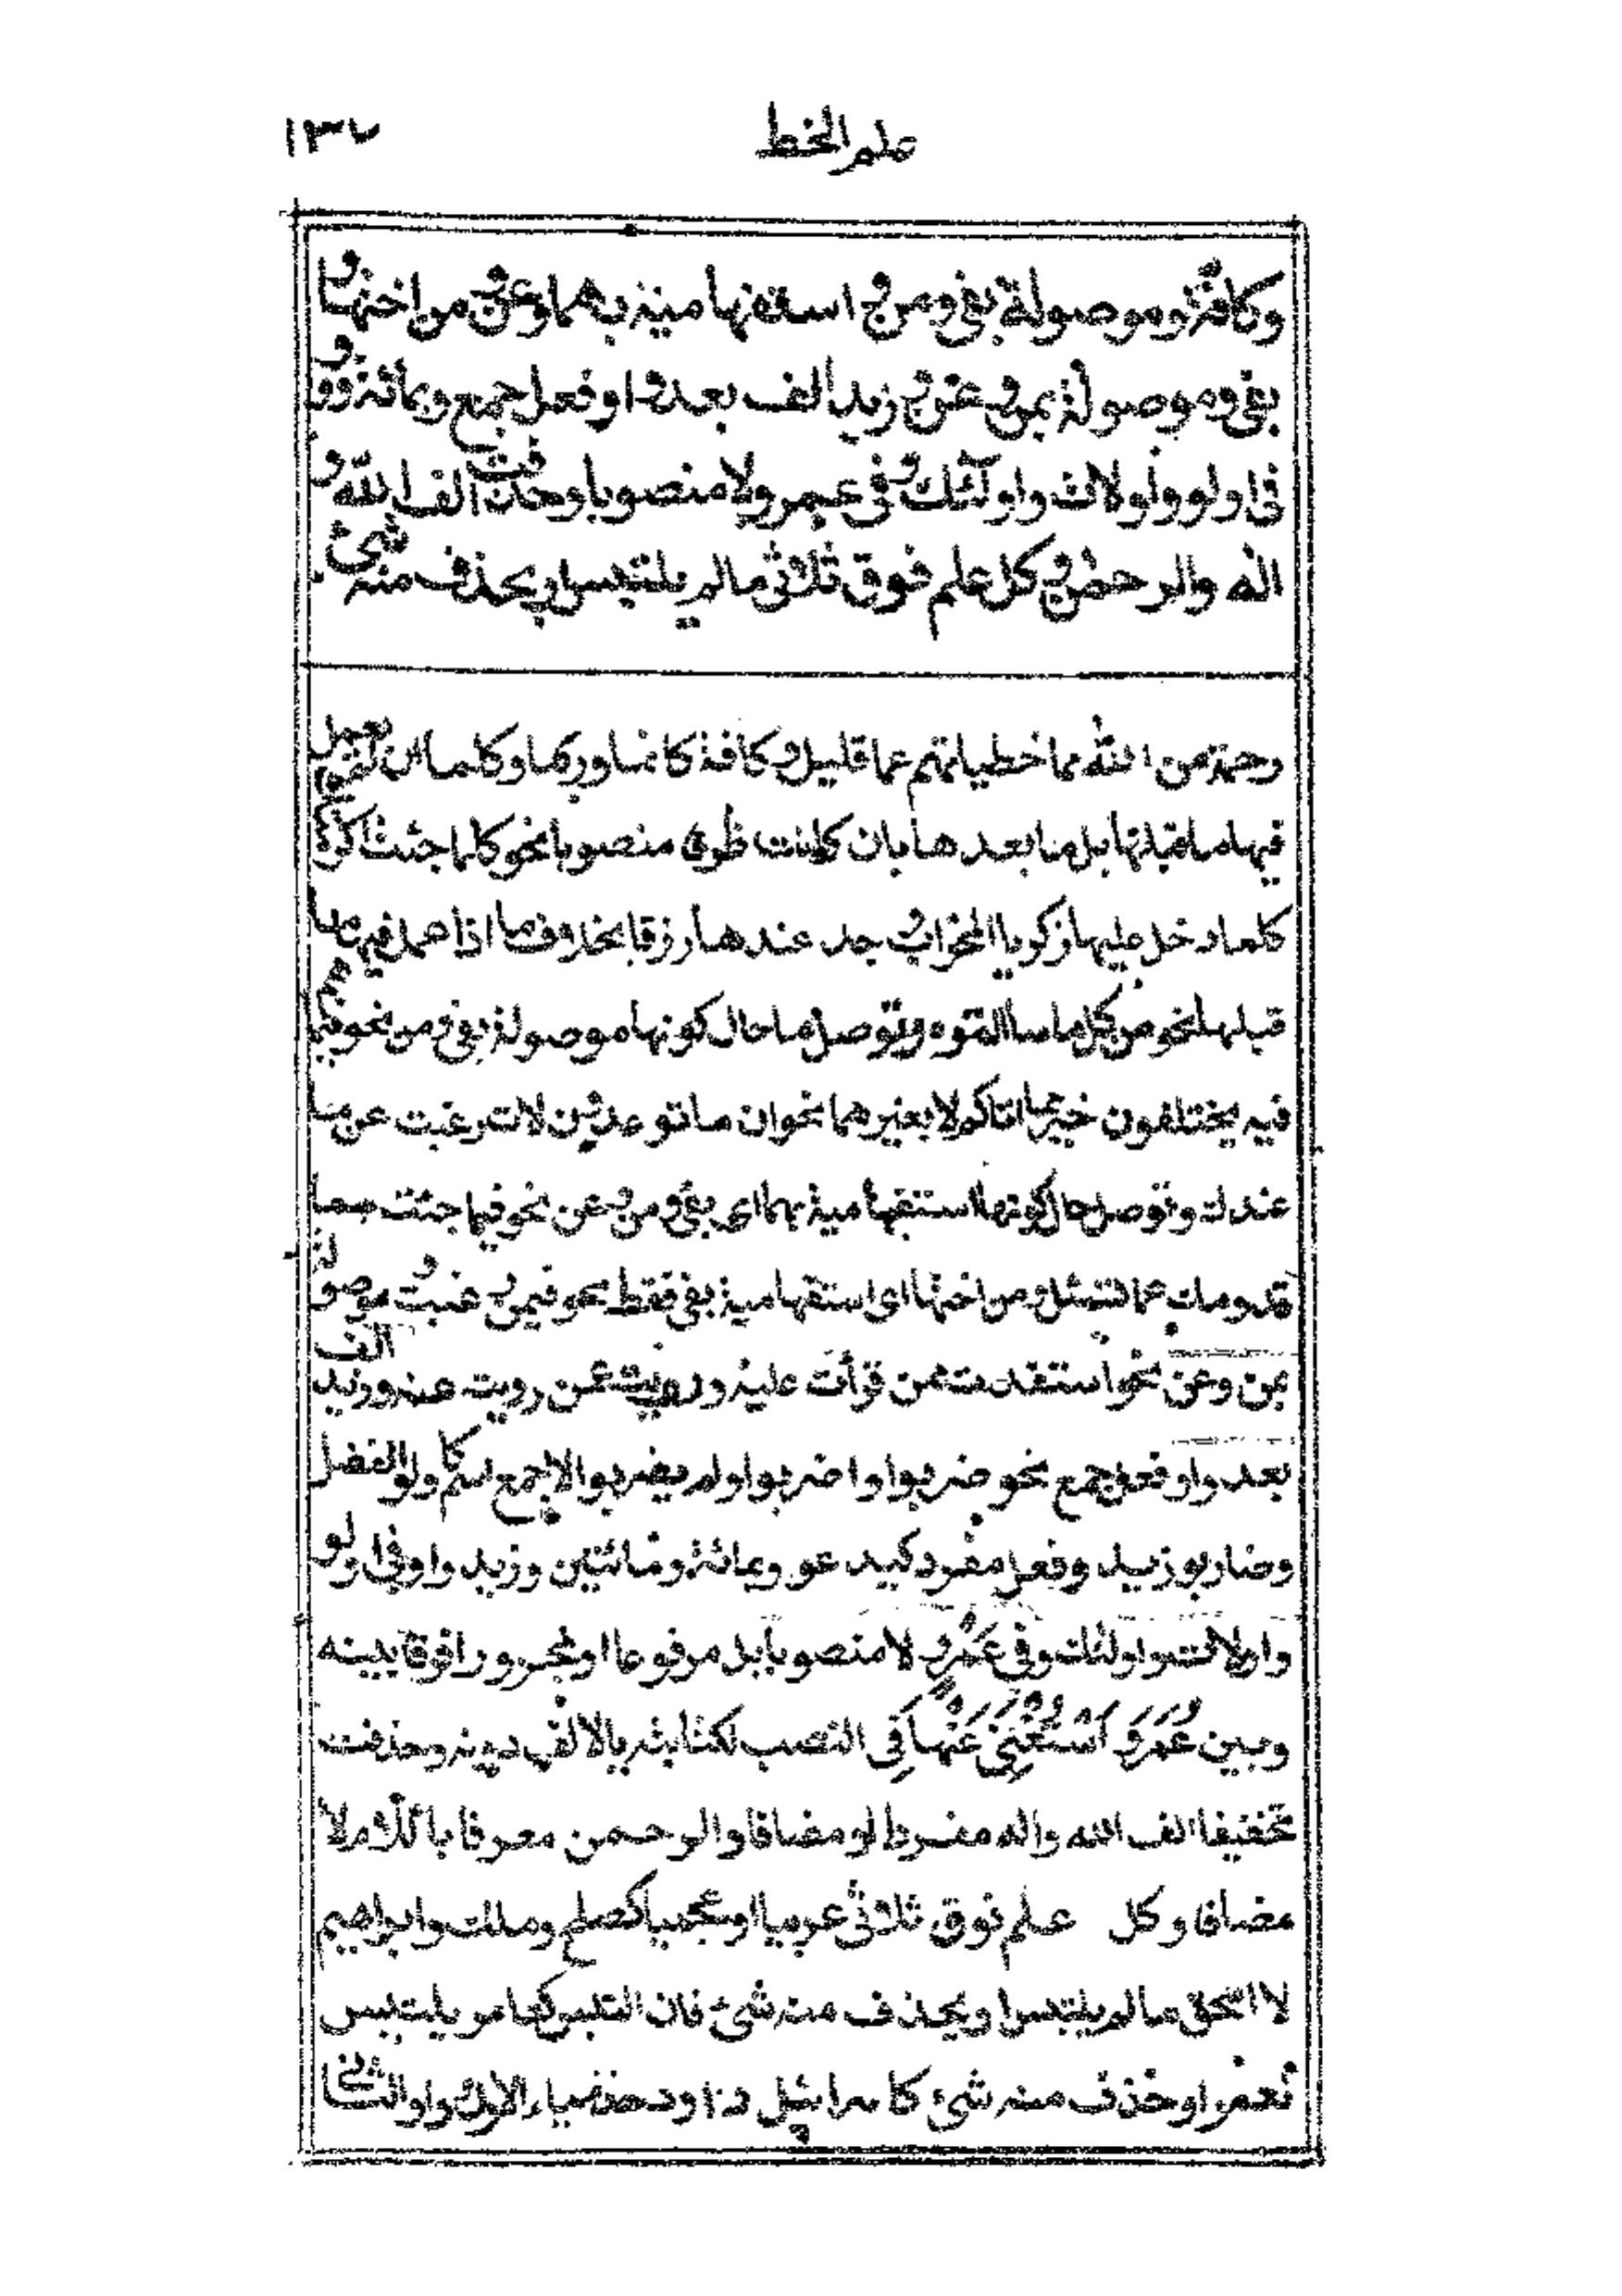 علم الخط ١٣٧
وكافة وموصولة بفي ومن واستفهامية بهما وعن ومن اختها و
بفي وموصولة بمن وعن وزيد الف بعد واو فعل جمع وبمائة وواو
في اولو واولات واولئك وفي عمرو لا منصوبا وحذفت الف الله و
اله والرحمن وكل علم فوق ثلاثي ما لم يلتبس او يحذف منه شيء
رحمة من الله مما خطيئاتهم عما قليل وكافة كانما وربما وكلما ان لم يعمل
فيها ما قبلها بل ما بعدها بان كانت ظرفا منصوبا نحو كلما جئت اكرمتك
كلما دخل عليها زكريا المحراب وجد عندها رزقا بخلاف ما اذا عمل فيها ما
قبلها نحو من كل ما سألتموه وتوصل ما حال كونها موصولة بفي ومن نحو فيما هم
فيه يختلفون خير مما اتاكم لا بغيرهما نحو ان ما توعدون لات رغبت عن ما
عندك وتوصل حال كونها استفهامية بهما اي بفي ومن وعن نحو فيما جئت مما
قدومك عما تسئل ومن اختها اي استفهامية بفي فقط نحو فيمن رغبت وموصولة
بمن وعن نحو استفدت ممن قرأت عليه ورويت عمن رويت عنه وزيد الف
بعد واو فعل جمع نحو ضربوا واضربوا ولم يضربوا لا جمع اسم كاولو الفضل
وضاربو زيد وفعل مفرد كيدعو وبمائة ومائتين وزيد واو في اولو
واولات واولئك وفي عمرو لا منصوبا بل مرفوعا او مجرورا فرقا بينه
وبين عمر واستغني عنها في النصب لكتابته بالالف دونه وحذفت
تخفيفا الف الله واله مفردا او مضافا والرحمن معرفا باللام لا
مضافا وكل علم فوق ثلاثي عربيا او عجميا كصلح وملك وابراهيم
لا اسحق ما لم يلتبس او يحذف منه شيء فان التبس كعامر يلتبس
بعمر او حذف منه شيء كاسرائيل وداود حذف ياء الاول واو الثاني